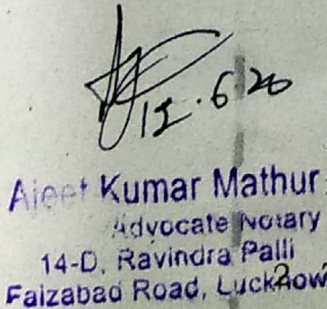 12.6.20
Ajeet Kumar Mathur
Advocate Notary
14-D, Ravindra Palli
Faizabad Road, Lucknow
2